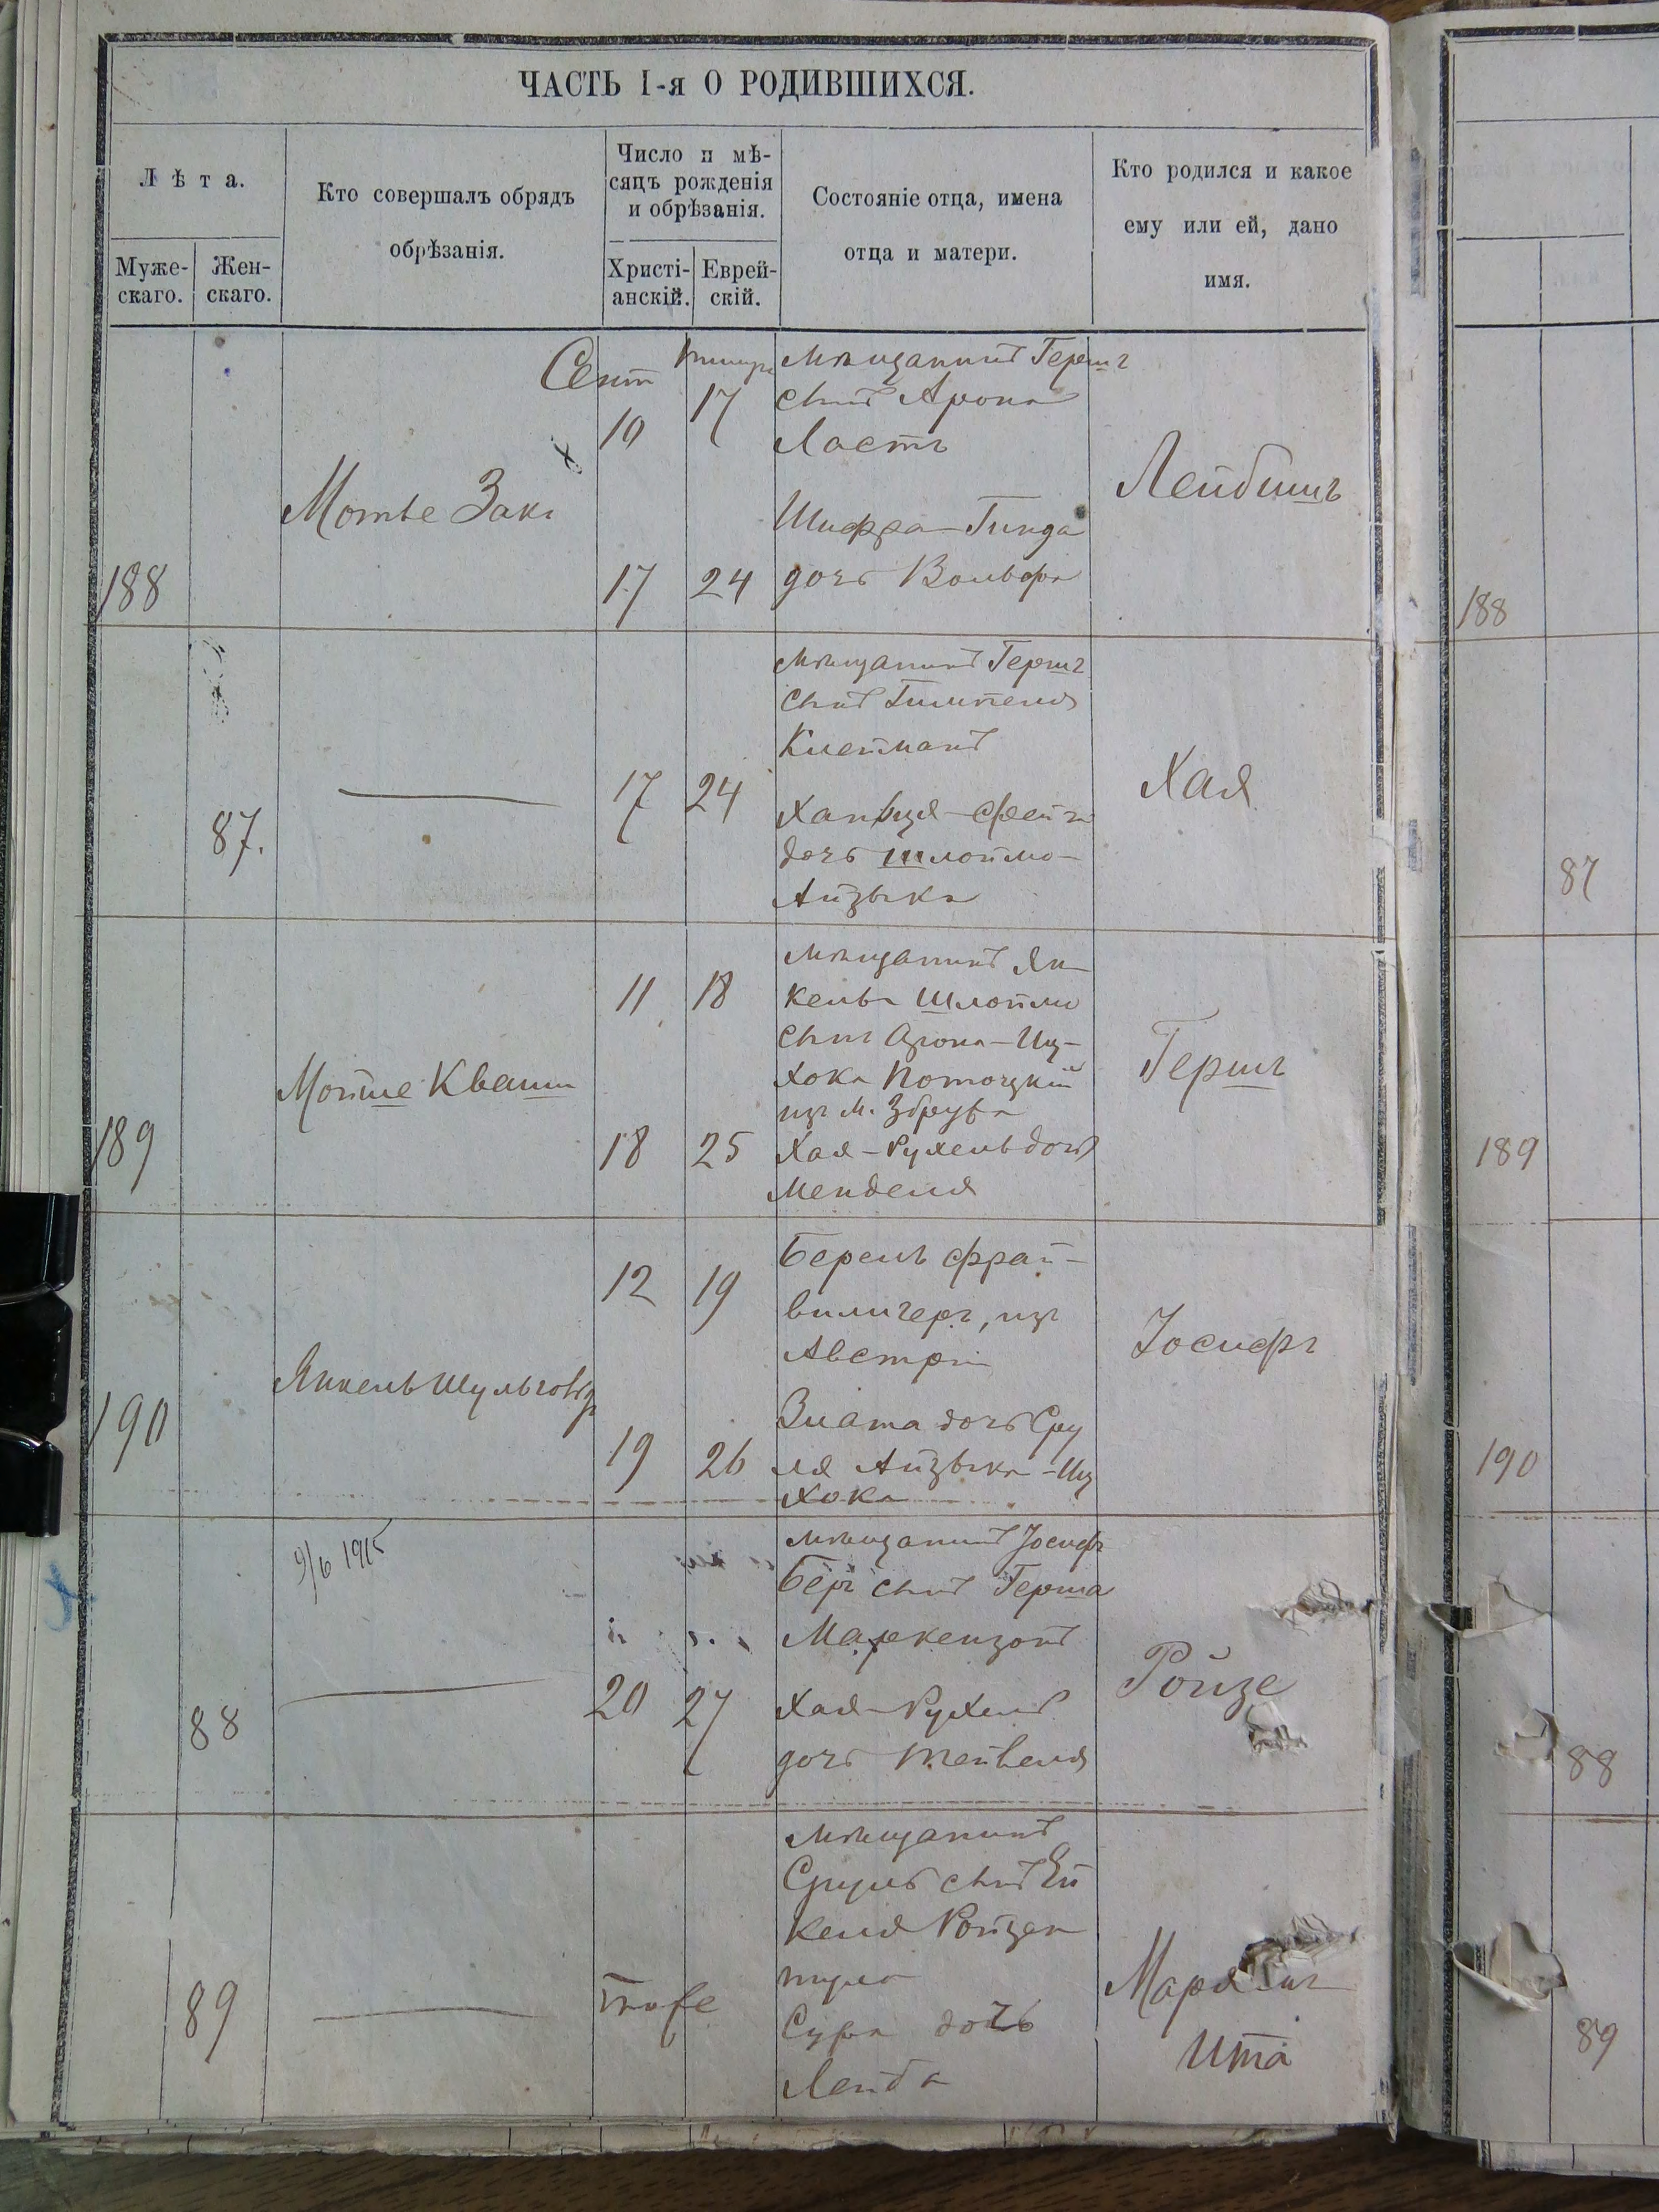 ЧАСТЬ I-я О РОДИВШИХСЯ.
Лѣта.
Муже-
скаго.
Жен-
скаго.
Кто совершалъ обрядъ
обрѣзанія.
Число и мѣ-
сяцъ рожденія
и обрѣзанія.
Христі-
анскій.
Еврей-
скій.
Состояніе отца, имена
отца и матери.
Кто родился и какое
ему или ей, дано
имя.
188
Мотье Закъ
Сент
10
17
17
24
Мѣщанинъ Гершъ
сынъ Арона
Ластъ
Шифра-Гинда
дочь Вольфа
Лейбишъ
188
87.
17
24
Мѣщанинъ Гершъ
сынъ Гимпеля
Клейманъ
дочь Шлоймо-
Айзыка
Хая
87
189
Мойше Кваша
11
18
18
25
Мѣщанинъ Ян-
кель Шлоймо
сынъ Арона-Иц-
хока Потоцкій
изъ м. Збружа
Хая-Рухель дочь
Менделя
Гершъ
189
190
Янкель
12
19
19
26
Берель Фрай-
вилигеръ, изъ
Австріи
Злата дочь Сру
ля Айзыка-Иц
хока
Іосифъ
190
9/6 1915
88
20
27
мѣщанинъ Іосифъ
Беръ сынъ Герша
Маркензонъ
Хая-Рухель
дочь Тейвеля
Ройзе
88
89
тоже
мѣщанинъ
Сруль сынъ Ей
келя Ройзен
Сура дочь
Лейба
Ита
89